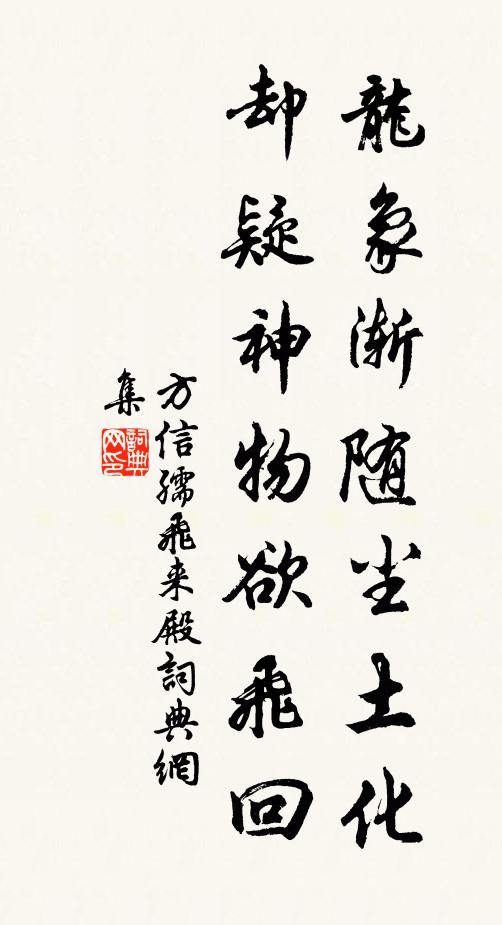 龍象渐随尘土化
却疑神物欲飛回
方信孺飛来殿詞典網
集
詞典
网印